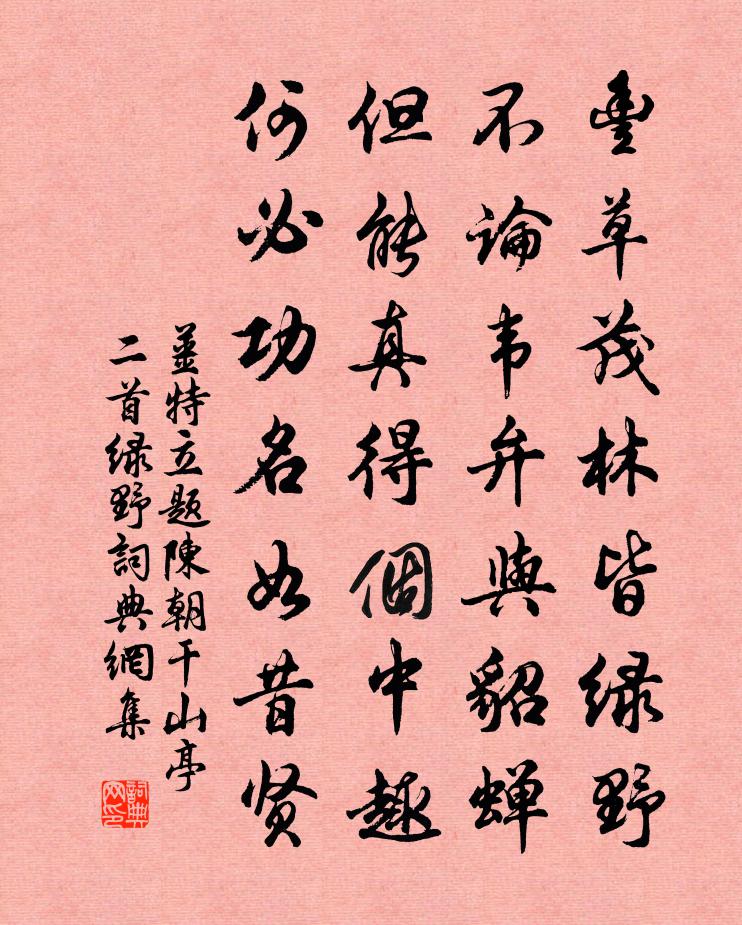 豊草茂林皆绿野
不論韦弁與貂蝉
但能真得個中趣
何必功名如昔贤
姜特立题陳朝干山亭
二首绿野詞典網集
詞典
网印